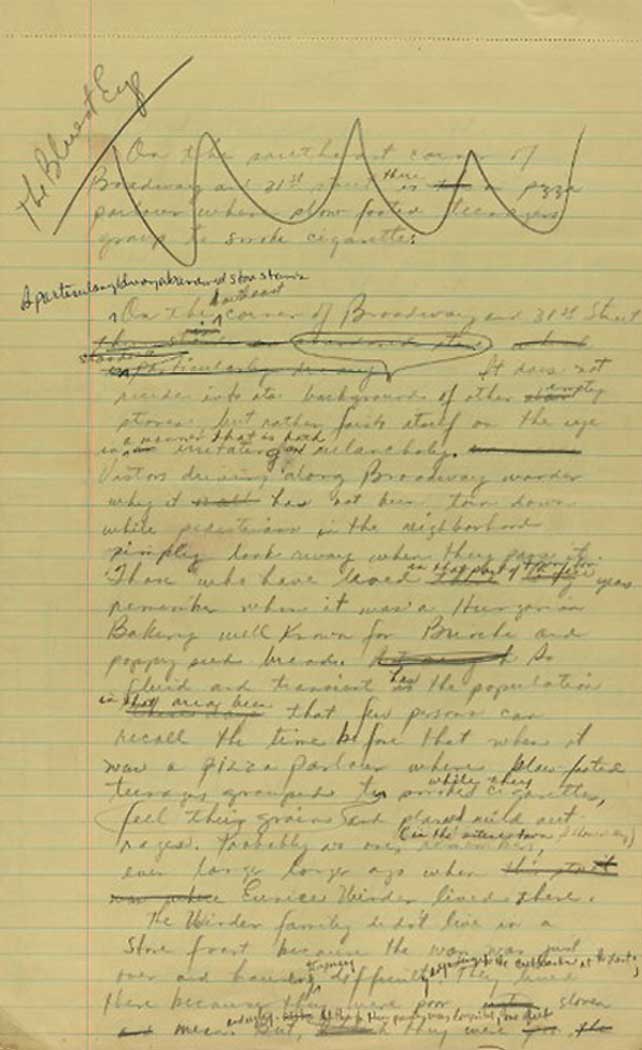 The Bluest Eye
On the southeast corner of
Broadway and 31st street there is a pizza
parlour where slow footed teenagers
group to smoke cigarettes.
A particularly dreary abandoned store stands
On the southeast corner of Broadway and 31st Street
It does not
recede into its backgrounds of other empty
stores, but rather foists itself on the eye
in a manner that is both irritating and melancholy.
Visitors driving along Broadway wonder
why it has not been torn down
while pedestrians in the neighborhood
simply look away when they pass it.
Those who have lived in that part of years
remember when it was a Hungarian
Bakery well known for Brioche and
poppy seed breads. So
fluid and transient has the population
in that area been that few persons can
recall the time before that when it
was a pizza parlour where slow-footed
teenagers grouped to smoke cigarettes, while they
feel their groins and planned mild out
rages. Probably no one remembers,
even longer longer ago when
Eunice Winder lived there.
The Winder family didn't live in a
store front because the war was just
over and housing difficult. They lived
there because they were poor
mean. But, they were